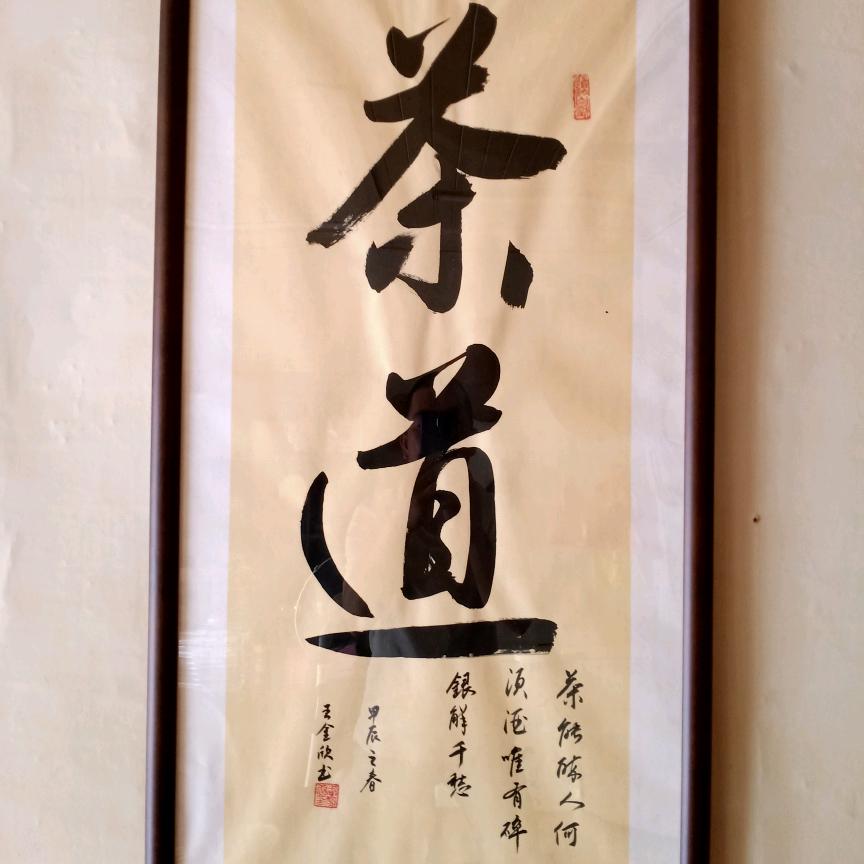 茶道
茶能醉人何
須酒唯有碎
銀解千愁
甲辰之春
王金欣书